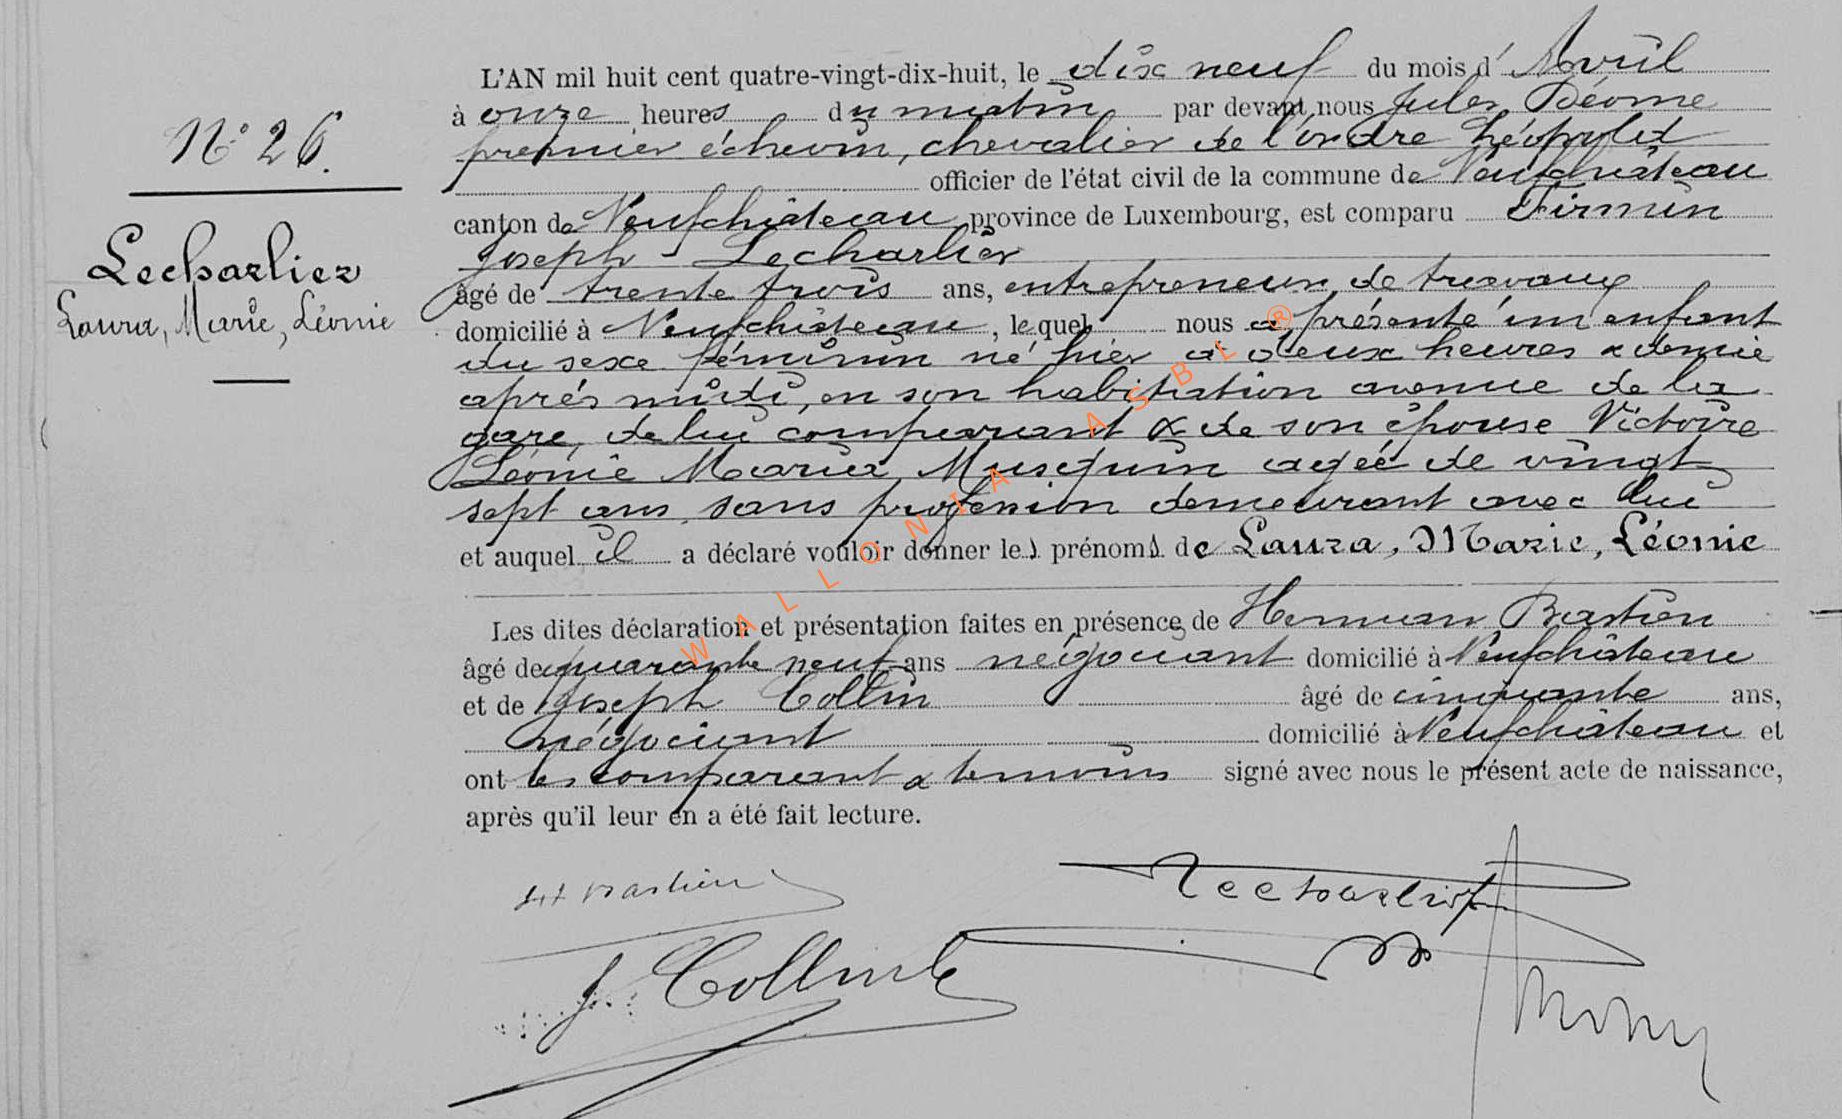 N° 26.
Lecharlier
Laura, Marie, Léonie
L'AN mil huit cent quatre-vingt-dix-huit, le dix neuf du mois d'Avril
à onze heures du matin par devant nous Jules Déome
premier échevin, chevalier de l'ordre Léopold
officier de l'état civil de la commune de Neufchâteau
canton de Neufchâteau province de Luxembourg, est comparu Firmin
Joseph Lecharlier
âgé de trente trois ans, entrepreneur de travaux
domicilié à Neufchâteau, lequel nous a présenté un enfant
du sexe féminin né hier à deux heures & demie
après midi, en son habitation avenue de la
gare, de lui comparant & de son épouse Victoire
Léonie Maria Musquin agée de vingt
sept ans, sans profession demeurant avec lui
et auquel il a déclaré vouloir donner les prénoms de Laura, Marie, Léonie
Les dites déclaration et présentation faites en présence de Herman Bastien
âgé de quarante neuf ans négociant domicilié à Neufchâteau
et de Joseph Collin âgé de cinquante ans,
négociant domicilié à Neufchâteau et
ont les comparant & temoins signé avec nous le présent acte de naissance,
après qu'il leur en a été fait lecture.
Bastien
Lecharlier
J. Collin
WALLONIA ASBL ®